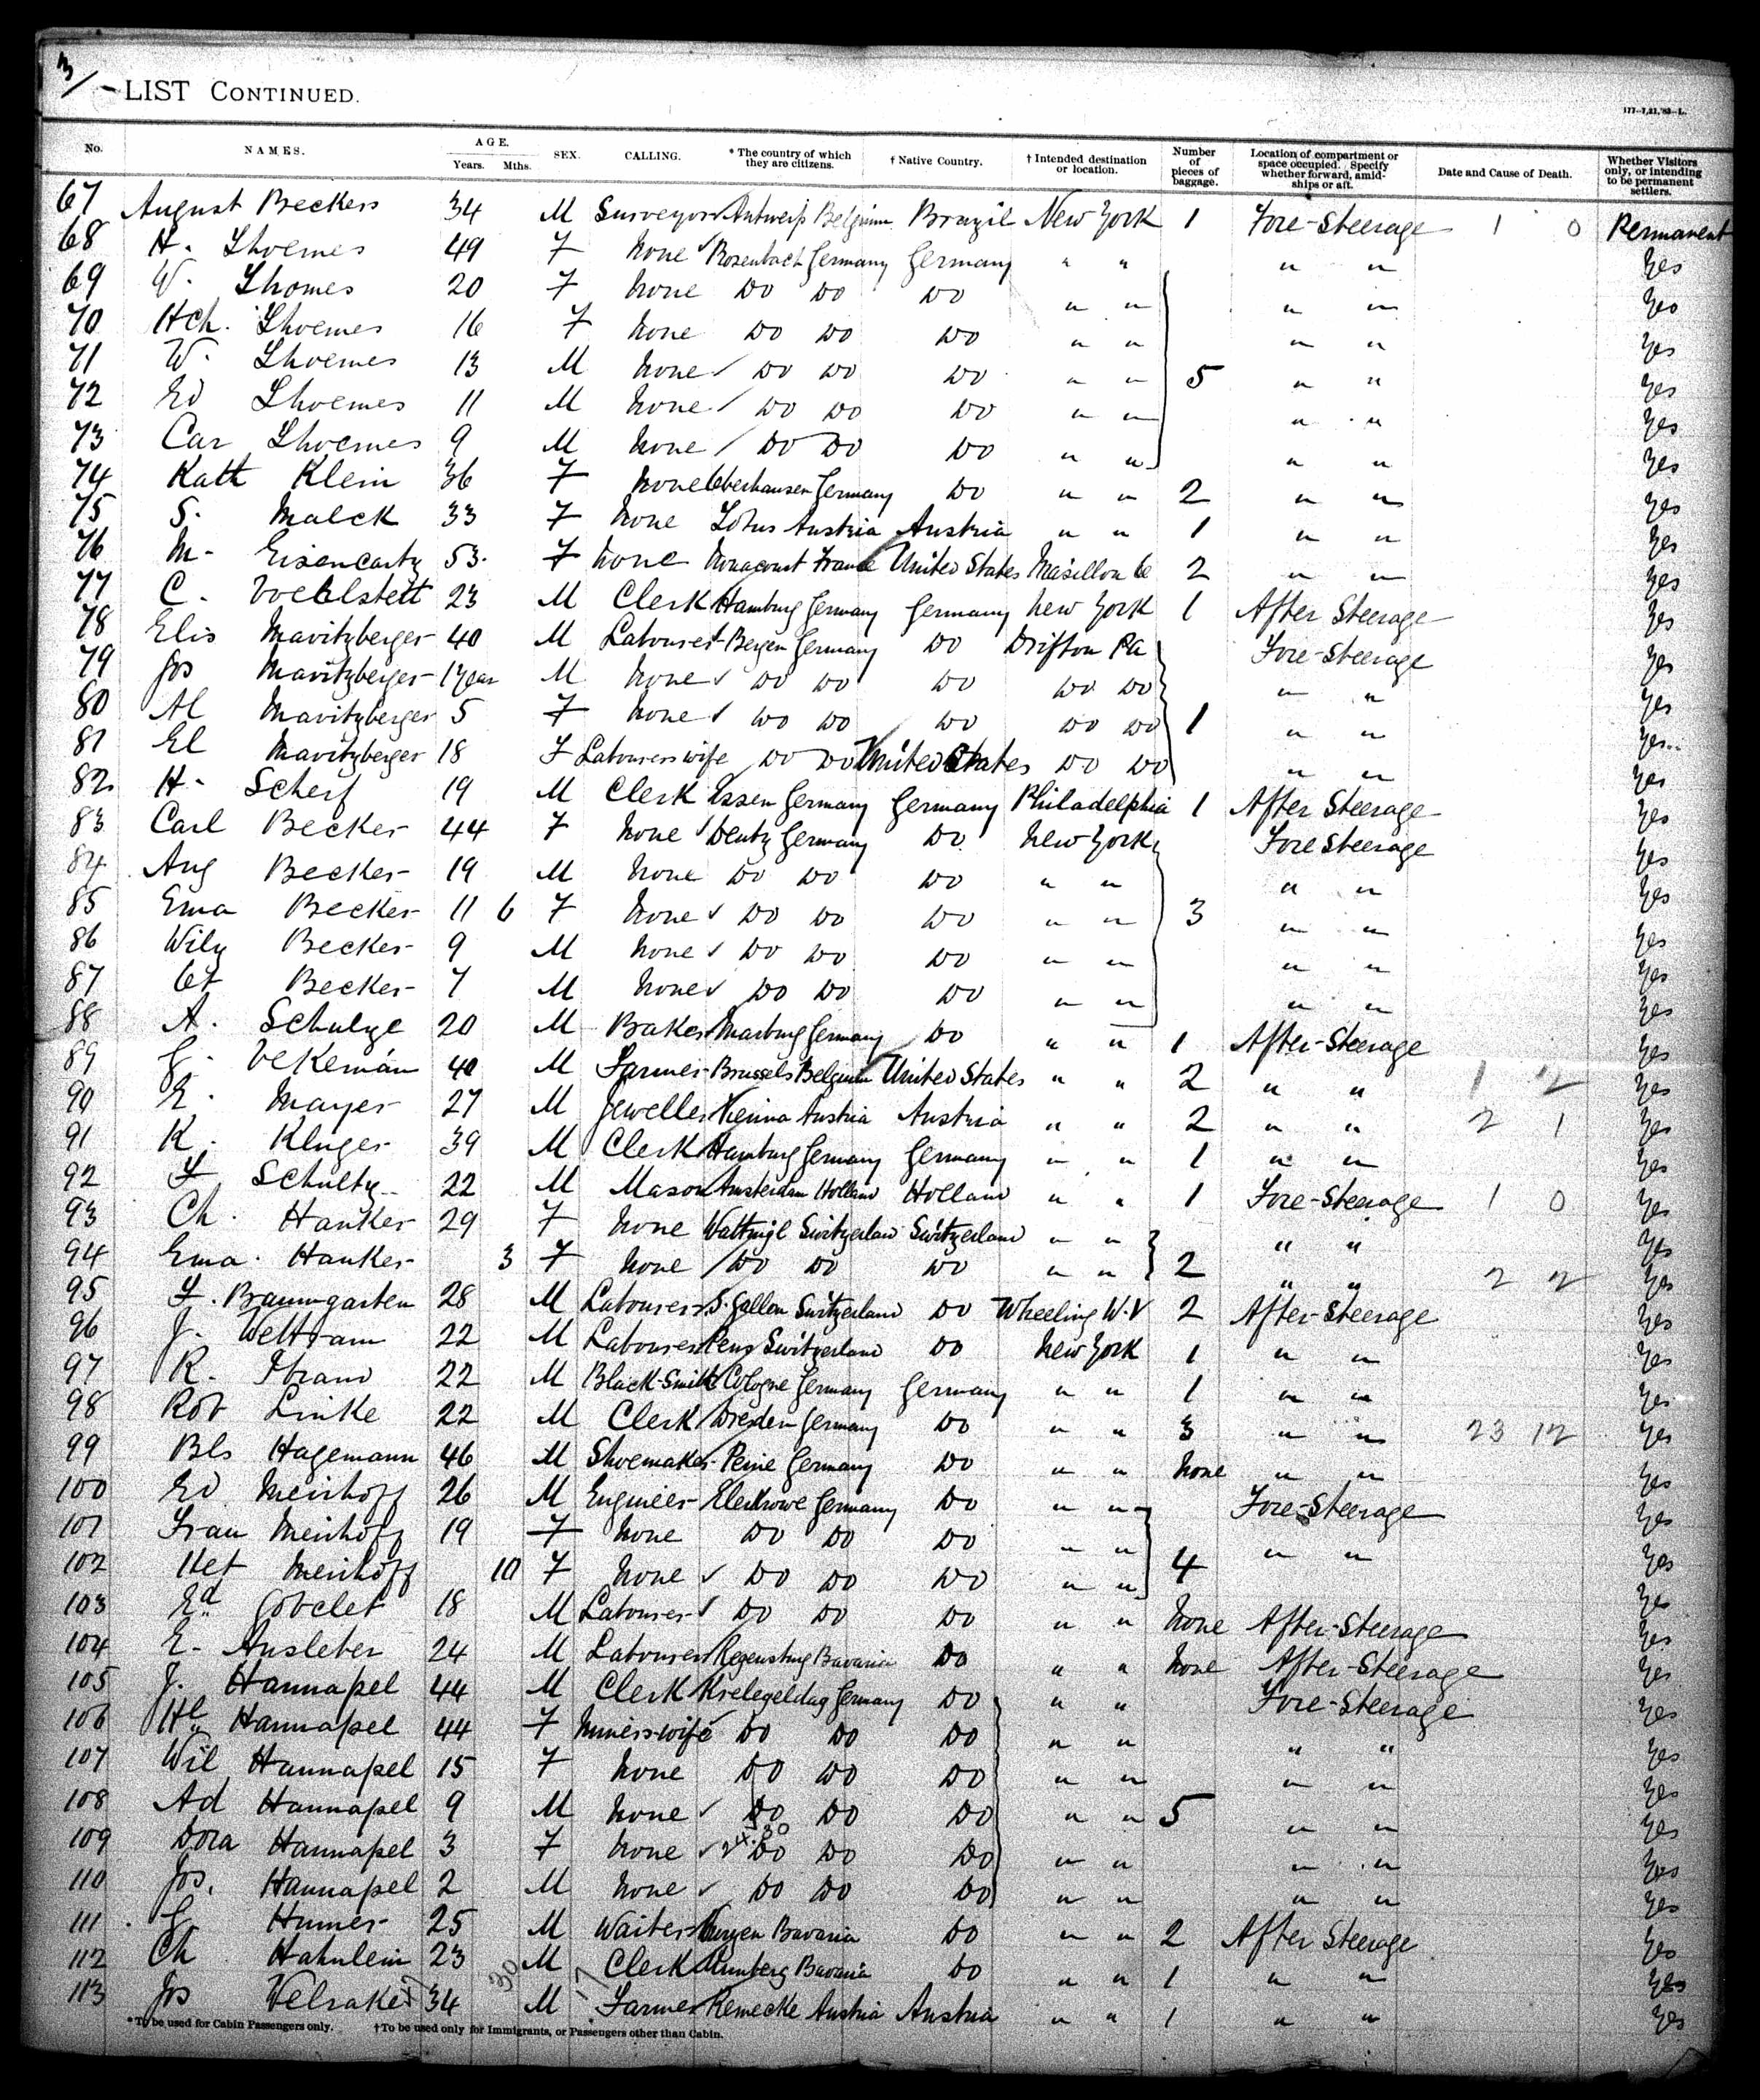 3/
LIST CONTINUED.
177-7,21,'83-L.
No. NAMES. AGE. Years. Mths. SEX. CALLING. * The country of which they are citizens. † Native Country. † Intended destination or location. Number of pieces of baggage. Location of compartment or space occupied. Specify whether forward, amidships or aft. Date and Cause of Death. Whether Visitors only, or intending to be permanent settlers.
67 August Beckers 34 M Surveyor Antwerp Belgium Brazil New York 1 Fore-Steerage 1 0 Permanent
68 H. Thoemes 49 F None Rosenbach Germany Germany " " " " Yes
69 W. Thomes 20 F None Do Do Do " " " " Yes
70 Hch. Thoemes 16 F None Do Do Do " " " " Yes
71 W. Thoemes 13 M None Do Do Do " " 5 " " Yes
72 Ed Thoemes 11 M None Do Do Do " " " " Yes
73 Car Thoemes 9 M None Do Do Do " " " " Yes
74 Kath Klein 36 F None Oberhausen Germany Do " " 2 " " Yes
75 S. Malck 33 F None Austria Austria " " 1 " " Yes
76 M. 53 F None France United States Masillon 2 " " Yes
77 C. 23 M Clerk Hamburg Germany Germany New York 1 After Steerage Yes
78 Elis Mavitzberger 40 M Labourer Bergen Germany Do Drifton Pa Fore-Steerage Yes
79 Jos Mavitzberger 1 year M None Do Do Do Do Do " " Yes
80 Al Mavitzberger 5 F None Do Do Do Do Do 1 " " Yes
81 El Mavitzberger 18 F Labourers wife Do Do United States Do Do " " Yes
82 H. Scherf 19 M Clerk Essen Germany Germany Philadelphia 1 After Steerage Yes
83 Carl Becker 44 F None Deutz Germany Do New York Fore Steerage Yes
84 Aug Becker 19 M None Do Do Do " " " " Yes
85 Ema Becker 11 6 F None Do Do Do " " 3 " " Yes
86 Wily Becker 9 M None Do Do Do " " " " Yes
87 Becker 7 M None Do Do Do " " " " Yes
88 A. Schulze 20 M Baker Marburg Germany Do " " 1 After-Steerage Yes
89 G. Vekeman 40 M Farmer Brussels Belgium United States " " 2 " " 1 2 Yes
90 E. Mayer 27 M Jeweller Vienna Austria Austria " " 2 " " 2 1 Yes
91 K. Kluger 39 M Clerk Hamburg Germany Germany " " 1 " " Yes
92 F Schultz 22 M Mason Amsterdam Holland Holland " " 1 Fore-Steerage 1 0 Yes
93 Ch. Hanker 29 F None Switzerland Switzerland " " " " Yes
94 Ema. Hanker 3 F None Do Do Do " " 2 " " 2 2 Yes
95 F. Baumgarten 28 M Labourer S. Gallen Switzerland Do Wheeling W.V 2 After-Steerage Yes
96 J. Weltram 22 M Labourer Switzerland Do New York 1 " " Yes
97 R. 22 M Black-Smith Cologne Germany Germany " " 1 " " Yes
98 Rob Linke 22 M Clerk Dresden Germany Do " " 3 " " 23 12 Yes
99 Bls Hagemann 46 M Shoemaker Peine Germany Do " " None " " Yes
100 Ed Meirhoff 26 M Engineer Germany Do " " Fore-Steerage Yes
101 Frau Meirhoff 19 F None Do Do Do " " " " Yes
102 Het Meirhoff 10 F None Do Do Do " " 4 Yes
103 Ed Gobelet 18 M Labourer Do Do Do " " None After-Steerage Yes
104 E. Ausleber 24 M Labourer Regensburg Bavaria Do " " None After-Steerage Yes
105 J. Hannapel 44 M Clerk Germany Do " " Fore-Steerage Yes
106 He Hannapel 44 F Miners-wife Do Do Do " " " " Yes
107 Wil Hannapel 15 F None Do Do Do " " " " Yes
108 Ad Hannapel 9 M None Do Do Do " " 5 " " Yes
109 Dora Hannapel 3 F None Do Do Do " " " " Yes
110 Jos. Hannapel 2 M None Do Do Do " " " " Yes
111 G Humer 25 M Waiter Bavaria Do " " 2 After Steerage Yes
112 Ch Hahnlein 23 M Clerk Bavaria Do " " 1 " " Yes
113 Jos 34 M Farmer Remecke Austria Austria " " 1 " " Yes
* To be used for Cabin Passengers only. † To be used only for Immigrants, or Passengers other than Cabin.